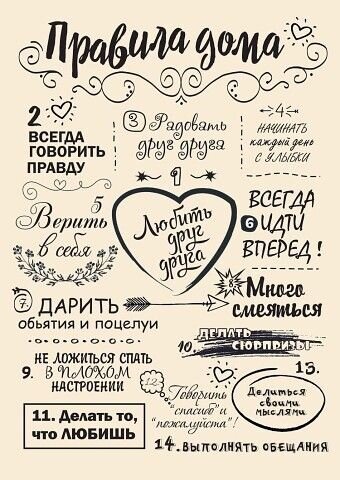 Правила дома
1
Любить
друг
друга
2
ВСЕГДА
ГОВОРИТЬ
ПРАВДУ
3 Радовать
друг друга
4
НАЧИНАТЬ
каждый день
С УЛЫБКИ
5
Верить
в себя
ВСЕГДА
6 ИДТИ
ВПЕРЕД!
7. ДАРИТЬ
обьятия и поцелуи
8.
Много
смеяться
9. НЕ ЛОЖИТЬСЯ СПАТЬ
В ПЛОХОМ
НАСТРОЕНИИ
10. ДЕЛАТЬ
СЮРПРИЗЫ
11. Делать то,
что ЛЮБИШЬ
12. Говорить
"спасибо" и
"пожалуйста"!
13.
Делиться
своими
мыслями
14. ВЫПОЛНЯТЬ ОБЕЩАНИЯ